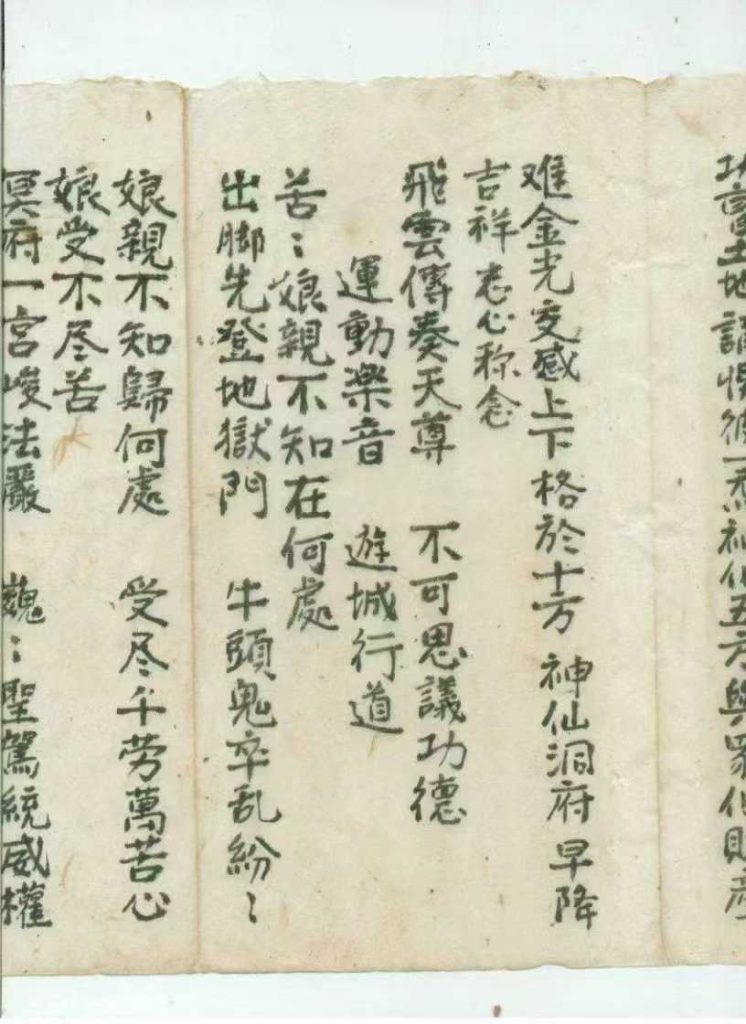 土地
难金光交感上下格於十方 神仙洞府 早降
吉祥 志心称念
飛雲傳奏天尊 不可思議功德
運動樂音 遊城行道
苦〻娘親不知在何處
出脚先登地獄門 牛頭鬼卒乱紛〻
娘親不知歸何處 受尽千劳萬苦心
娘受不尽苦
冥府一宮峻法嚴 巍〻聖駕統威權